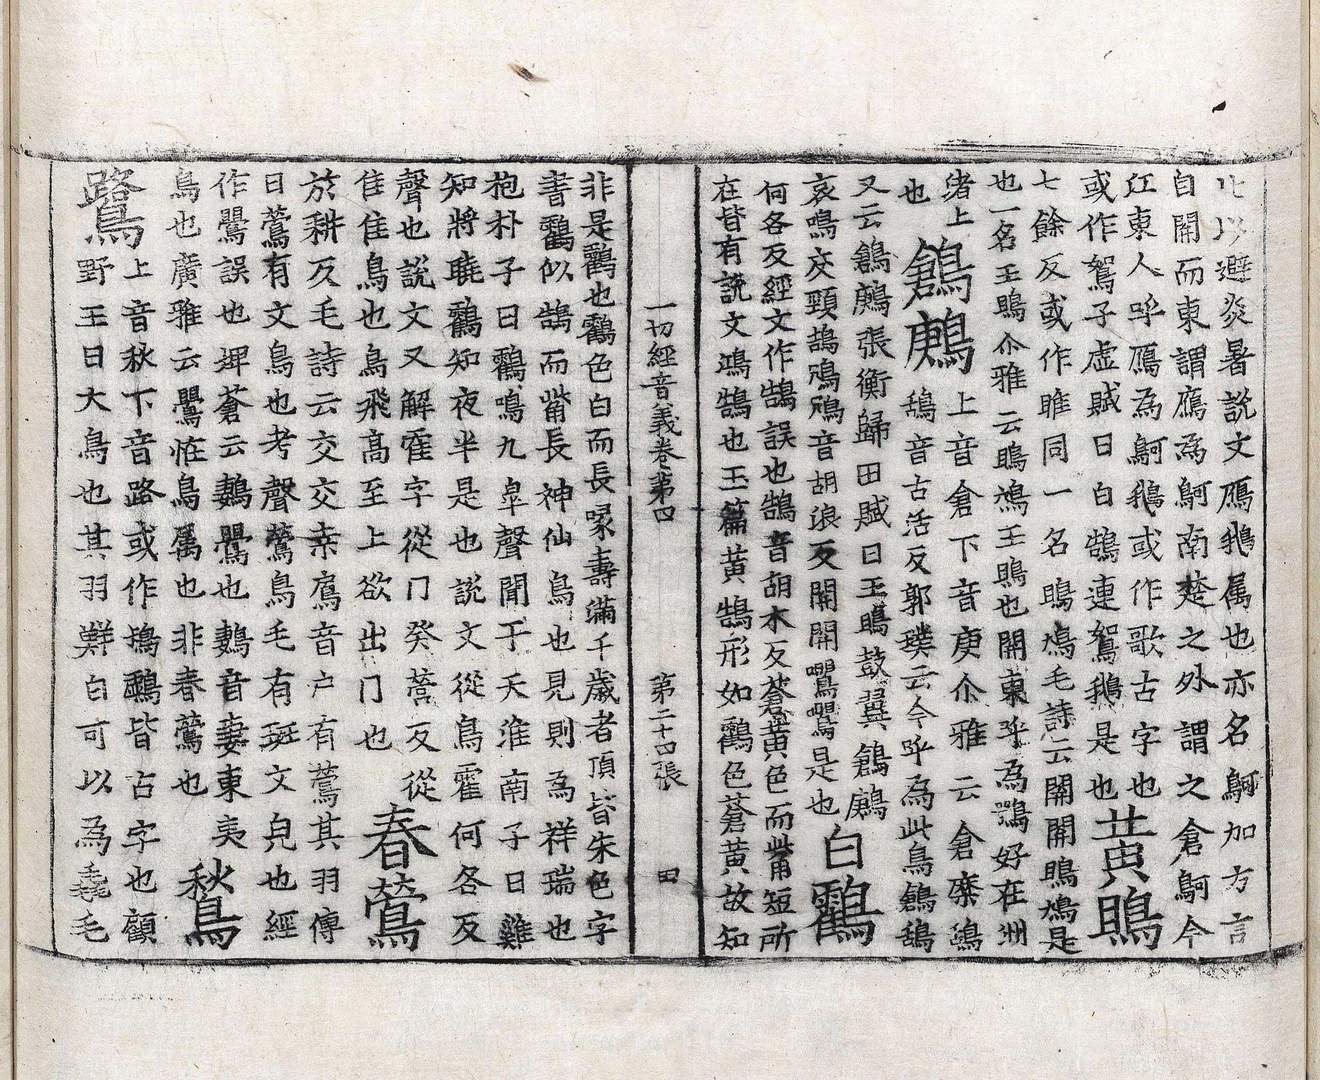 北以避炎暑說文鴈鵝属也亦名鴚加方言
自關而東謂鴈為鴚南楚之外謂之倉鴚今
江東人呼鴈為鴚鵝或作歌古字也黃鵙
或作鴐子虛賦曰白鵠連鴐鵝是也
七餘反或作雎同一名鵙鳩毛詩云關關鵙鳩是
也一名王鵙尒雅云鵙鳩王鵙也關東呼為鶚好在洲
渚上
也鶬鶊上音倉下音庚尒雅云倉𢊍鴰
鴰音古活反郭璞云今呼為此鳥鶬鴰
又云鶬鶊張衡歸田賦曰王鵙鼓翼鶬鶊
哀鳴交頸頡頏頏音胡浪反關關嚶嚶是也白鸖
何各反經文作鵠誤也鵠音胡木反蒼黃色而觜短所
在皆有說文鴻鵠也玉篇黃鵠形如鸖色蒼黃故知
一切經音義卷第四 第二十四張 田
非是鸖也鸖色白而長㗋壽滿千歲者頂皆朱色字
書鸖似鵠而觜長神仙鳥也見則為祥瑞也
抱朴子曰鸖鳴九皐聲聞于天淮南子曰雞
知將曉鸖知夜半是也說文從鳥霍何各反
聲也說文又解隺字從冂癸營反從
隹隹鳥也鳥飛高至上欲出冂也春鶯
於耕反毛詩云交交桒鳸音户有鶯其羽傳
曰鶯有文鳥也考聲鶯鳥毛有斑文皃也經
作鸎誤也埤蒼云鶈鸎也鶈音妻東夷
鳥也廣雅云鸎恠鳥属也非春鶯也鶖
鷺上音秋下音路或作𪀖鸕皆古字也顧
野王曰大鳥也其羽鮮白可以為毳毛